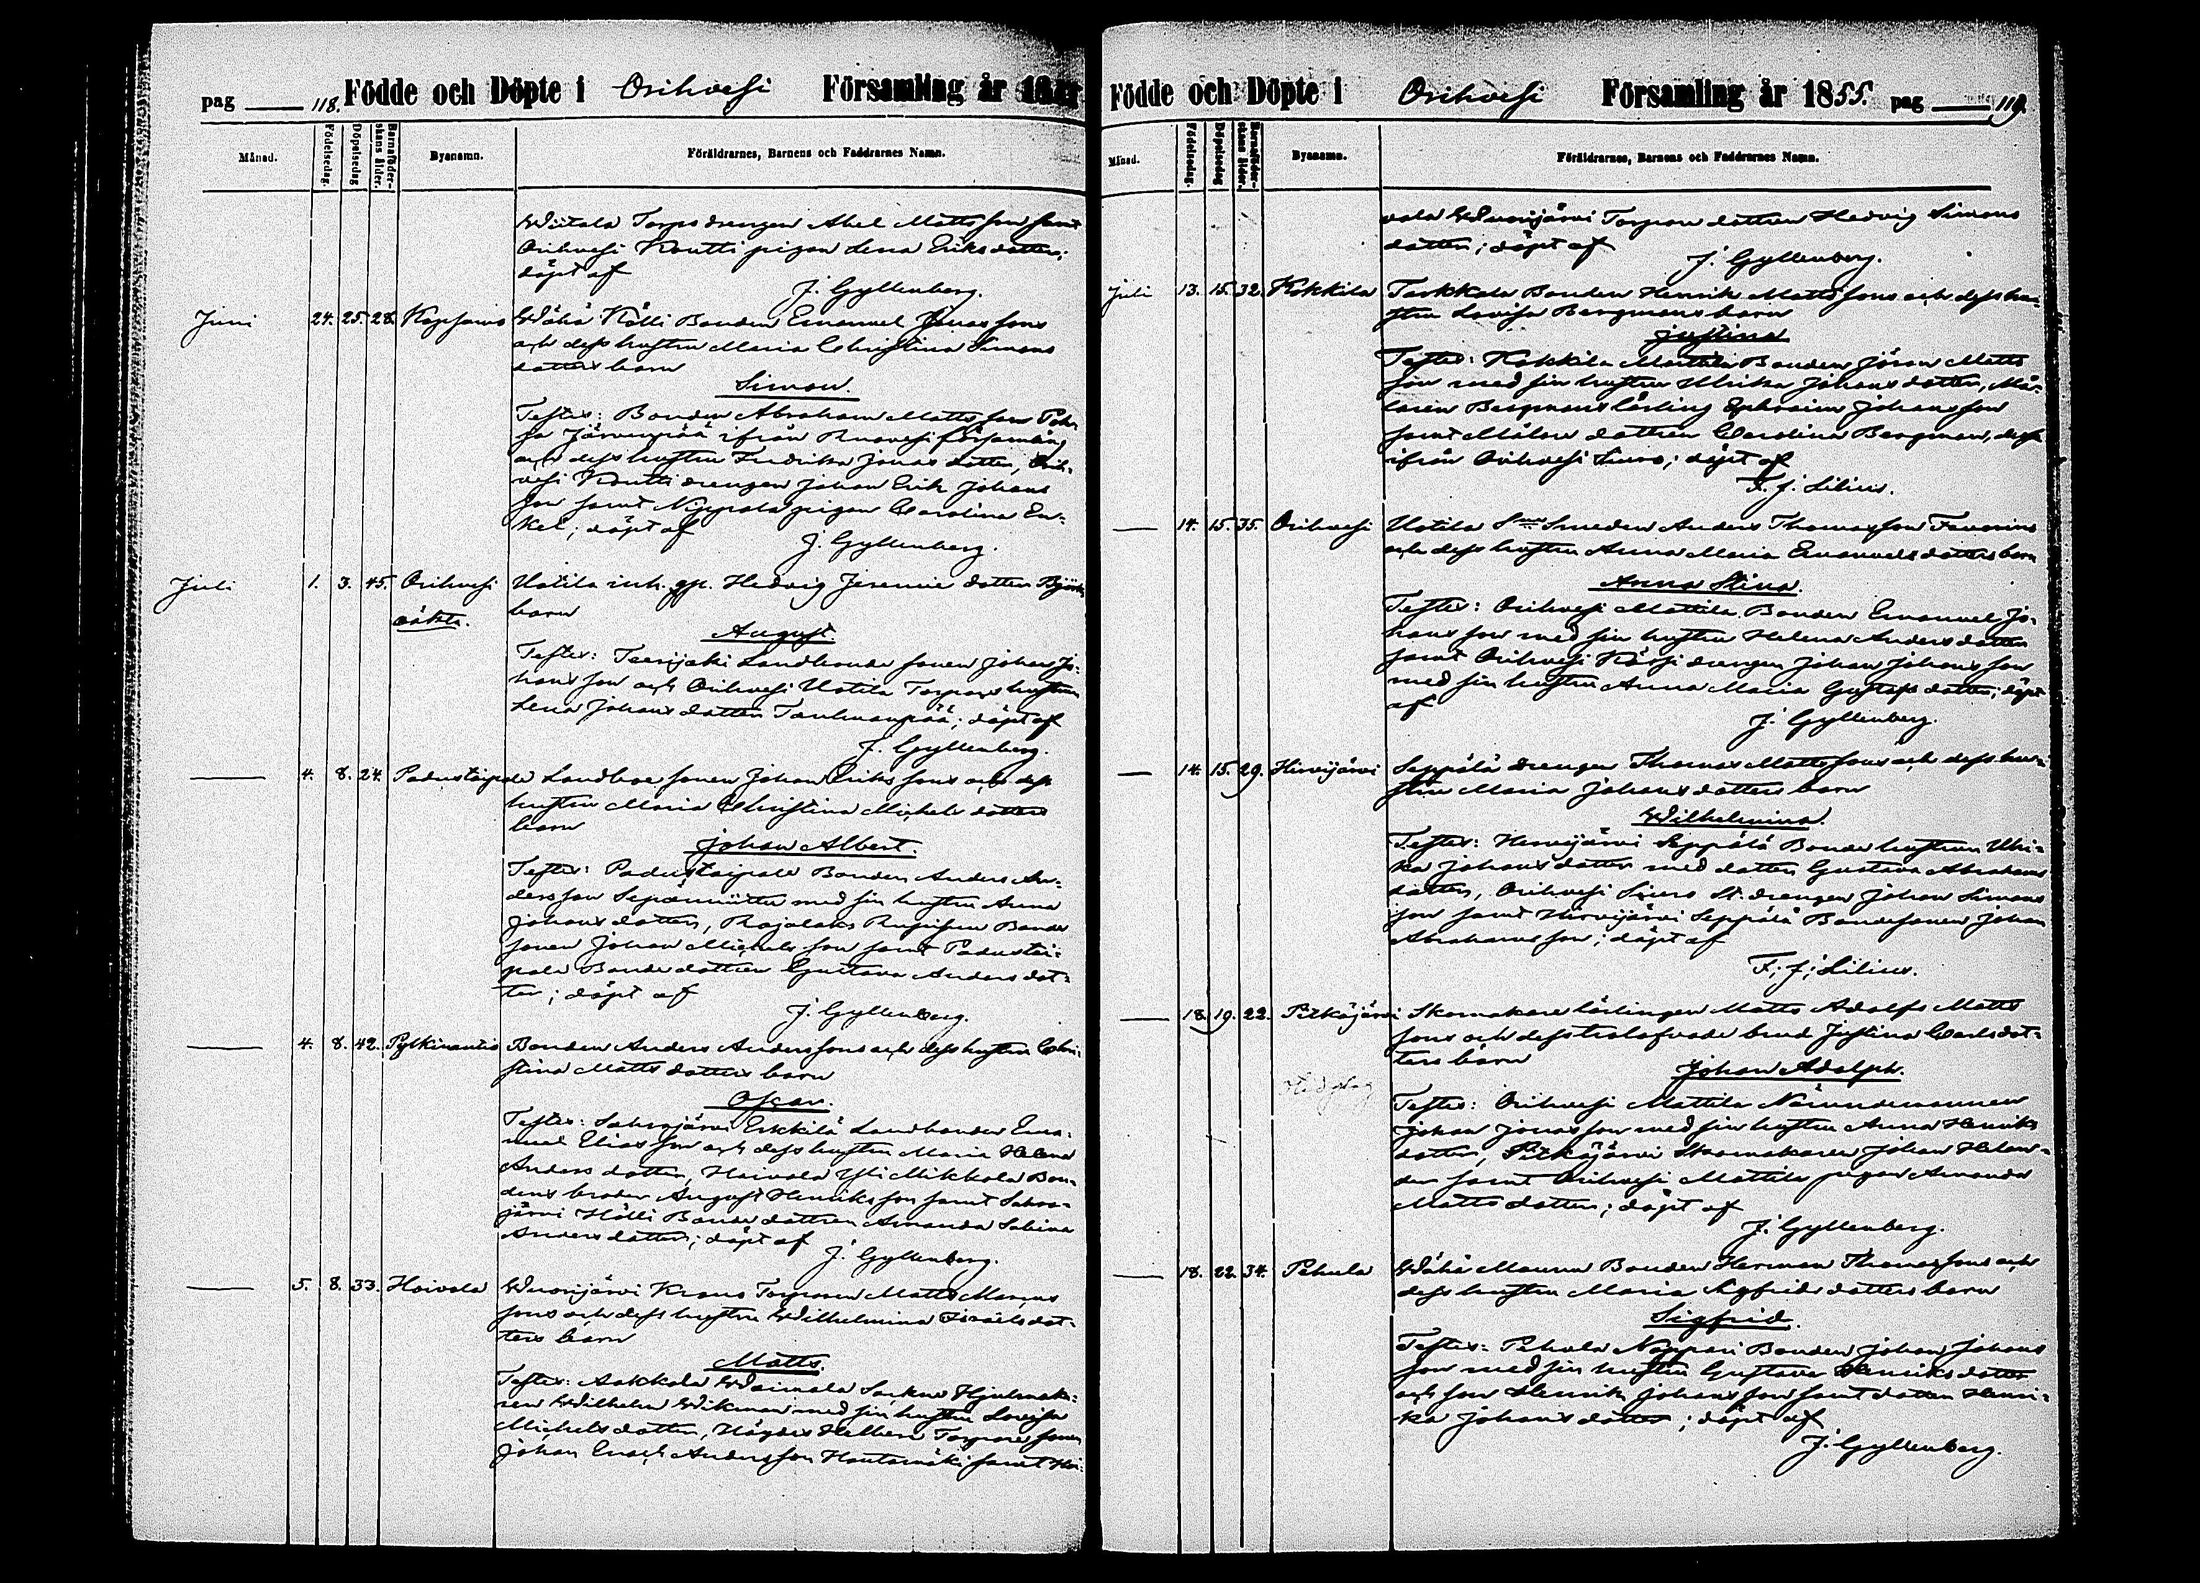 pag 118. Födde och Döpte i Orihvesi Församling år 18
Månad. Födelsedag. Döpelsedag Barnaföderskans ålder. Bysnamn. Föräldrarnes, Barnens och Faddrarnes Namn.
Wiitala Torpsdrengen Abel Mattsson samt
Orihvesi Koutti pigan Lena Eriksdotter;
döpt af
J. Gyllenberg.
Juni 24. 25. 28. Wähä Kölli Bonden Emanuel Jonassons
och dess hustru Maria Christina Simons
dotters barn
Simon.
Testes: Bonden Abraham Mattsson
Järvenpää ifrån Ruovesi församling
och dess hustru Fredrika Jonasdotter, Orih-
vesi Koutti drengen Johan Erik Johans
son samt pigan Carolina
döpt af
J. Gyllenberg.
Juli 1. 3. 45. Orihvesi Uotila inh. Hedvig Jeremiædotters
oäkta. barn
August.
Testes: Teerijoki Landbonde sonen Johan Jo-
hansson och Orihvesi Uotila Torpars hustrun
Lena Johansdotter döpt af
J. Gyllenberg.
4. 8. 24. Padustaipale Landboe sonen Johan Erikssons och dess
hustru Maria Christina Michelsdotters
barn
Johan Albert.
Testes: Padustaipale Bonden Anders An-
dersson med sin hustru Anna
Johansdotter, Bonde
sonen Johan Michelsson samt Padustai-
pale Bondedottren Gustava Andersdot-
ter; döpt af
J. Gyllenberg.
4. 8. 42. Bonden Anders Anderssons och dess hustru Chri-
stina Mattsdotters barn
Oscar.
Testes: Erkkilä Landbonden Ema-
nuel Eliasson och dess hustru Maria Helena
Andersdotter, Hoivala Yli Mikkola Bon-
dens broder August Henriksson samt
järvi Hölli Bondedottren Amanda Sabina
Andersdotter; döpt af
J. Gyllenberg.
5. 8. 33. Hoivala Wuorijärvi Torparen Matts
sons och dess hustru Wilhelmina Israelsdot-
ters barn
Matts.
Testes: Hjulmaka-
ren Wilhelm Wikman med sin hustru Lovisa
Michelsdotter, Torpare sonen
Johan Anderssson Hautamäki samt Hoi-
Födde och Döpte i Orihvesi Församling år 1855. pag 119.
Månad. Födelsedag. Döpelsedag Barnaföderskans ålder. Bysnamn. Föräldrarnes, Barnens och Faddrarnes Namn.
vala Wuorijärvi Torpare dottren Hedvig Simons
dotter; döpt af
J. Gyllenberg.
Juli 13. 15. 32. Kokkila Bonden Henrik Mattssons och dess hu-
stru Lovisa Bergmans barn
Justina
Testes: Kokkila Mattila Bonden Jöran Matts
son med sin hustru Ulrika Johansdotter, Må-
laren Bergmans lärling Ephraim Johansson
samt Målare dottren Carolina Bergman,
ifrån Orihvesi Siuro; döpt af
F. J. Lilius.
14. 15. 35. Orihvesi Uotila Smeden Anders Thomasson
och dess hustru Anna Maria Emanuelsdotters barn
Anna Stina.
Testes: Orihvesi Mattila Bonden Emanuel Jo-
hansson med sin hustru Helena Andersdotter
samt Orihvesi drengen Johan Johansson
med sin hustru Anna Maria Gustafsdotter; döpt
af
J. Gyllenberg.
14. 15. 29. Hirvijärvi Seppälä drengen Thomas Mattssons och dess hu-
stru Maria Johansdotters barn
Wilhelmina.
Testes: Hirvijärvi Seppälä Bonde hustrun Ulri-
ka Johansdotter med dotter Gustava Abrahams
dotter, Orihvesi Siuro St. drengen Johan Simons
son samt Hirvijärvi Seppälä Bondesonen Johan
Abrahamsson; döpt af
F. J. Lilius.
18. 19. 22. Pitkäjärvi Skomakare lärlingen Matts Adolf Matts
sons och dess trolofvade brud Justina Carlsdot-
ters barn
Johan Adolph.
Testes: Orihvesi Mattila Nämndemannen
Johan Jonasson med sin hustru Anna Henriks
dotter, Pitkäjärvi Skomakaren Johan Helan-
der samt Orihvesi Mattila pigan Amanda
Mattsdotter; döpt af
J. Gyllenberg.
18. 22. 34. Pehula Wähä Bonden Herman Thomassons och
dess hustru Maria Sigfridsdotters barn
Sigfrid.
Testes: Pehula Bonden Johan Johans
son med sin hustru Gustava Henriksdotter
och son Henrik Johansson samt dotter Henri-
ka Johansdotter; döpt af
J. Gyllenberg.